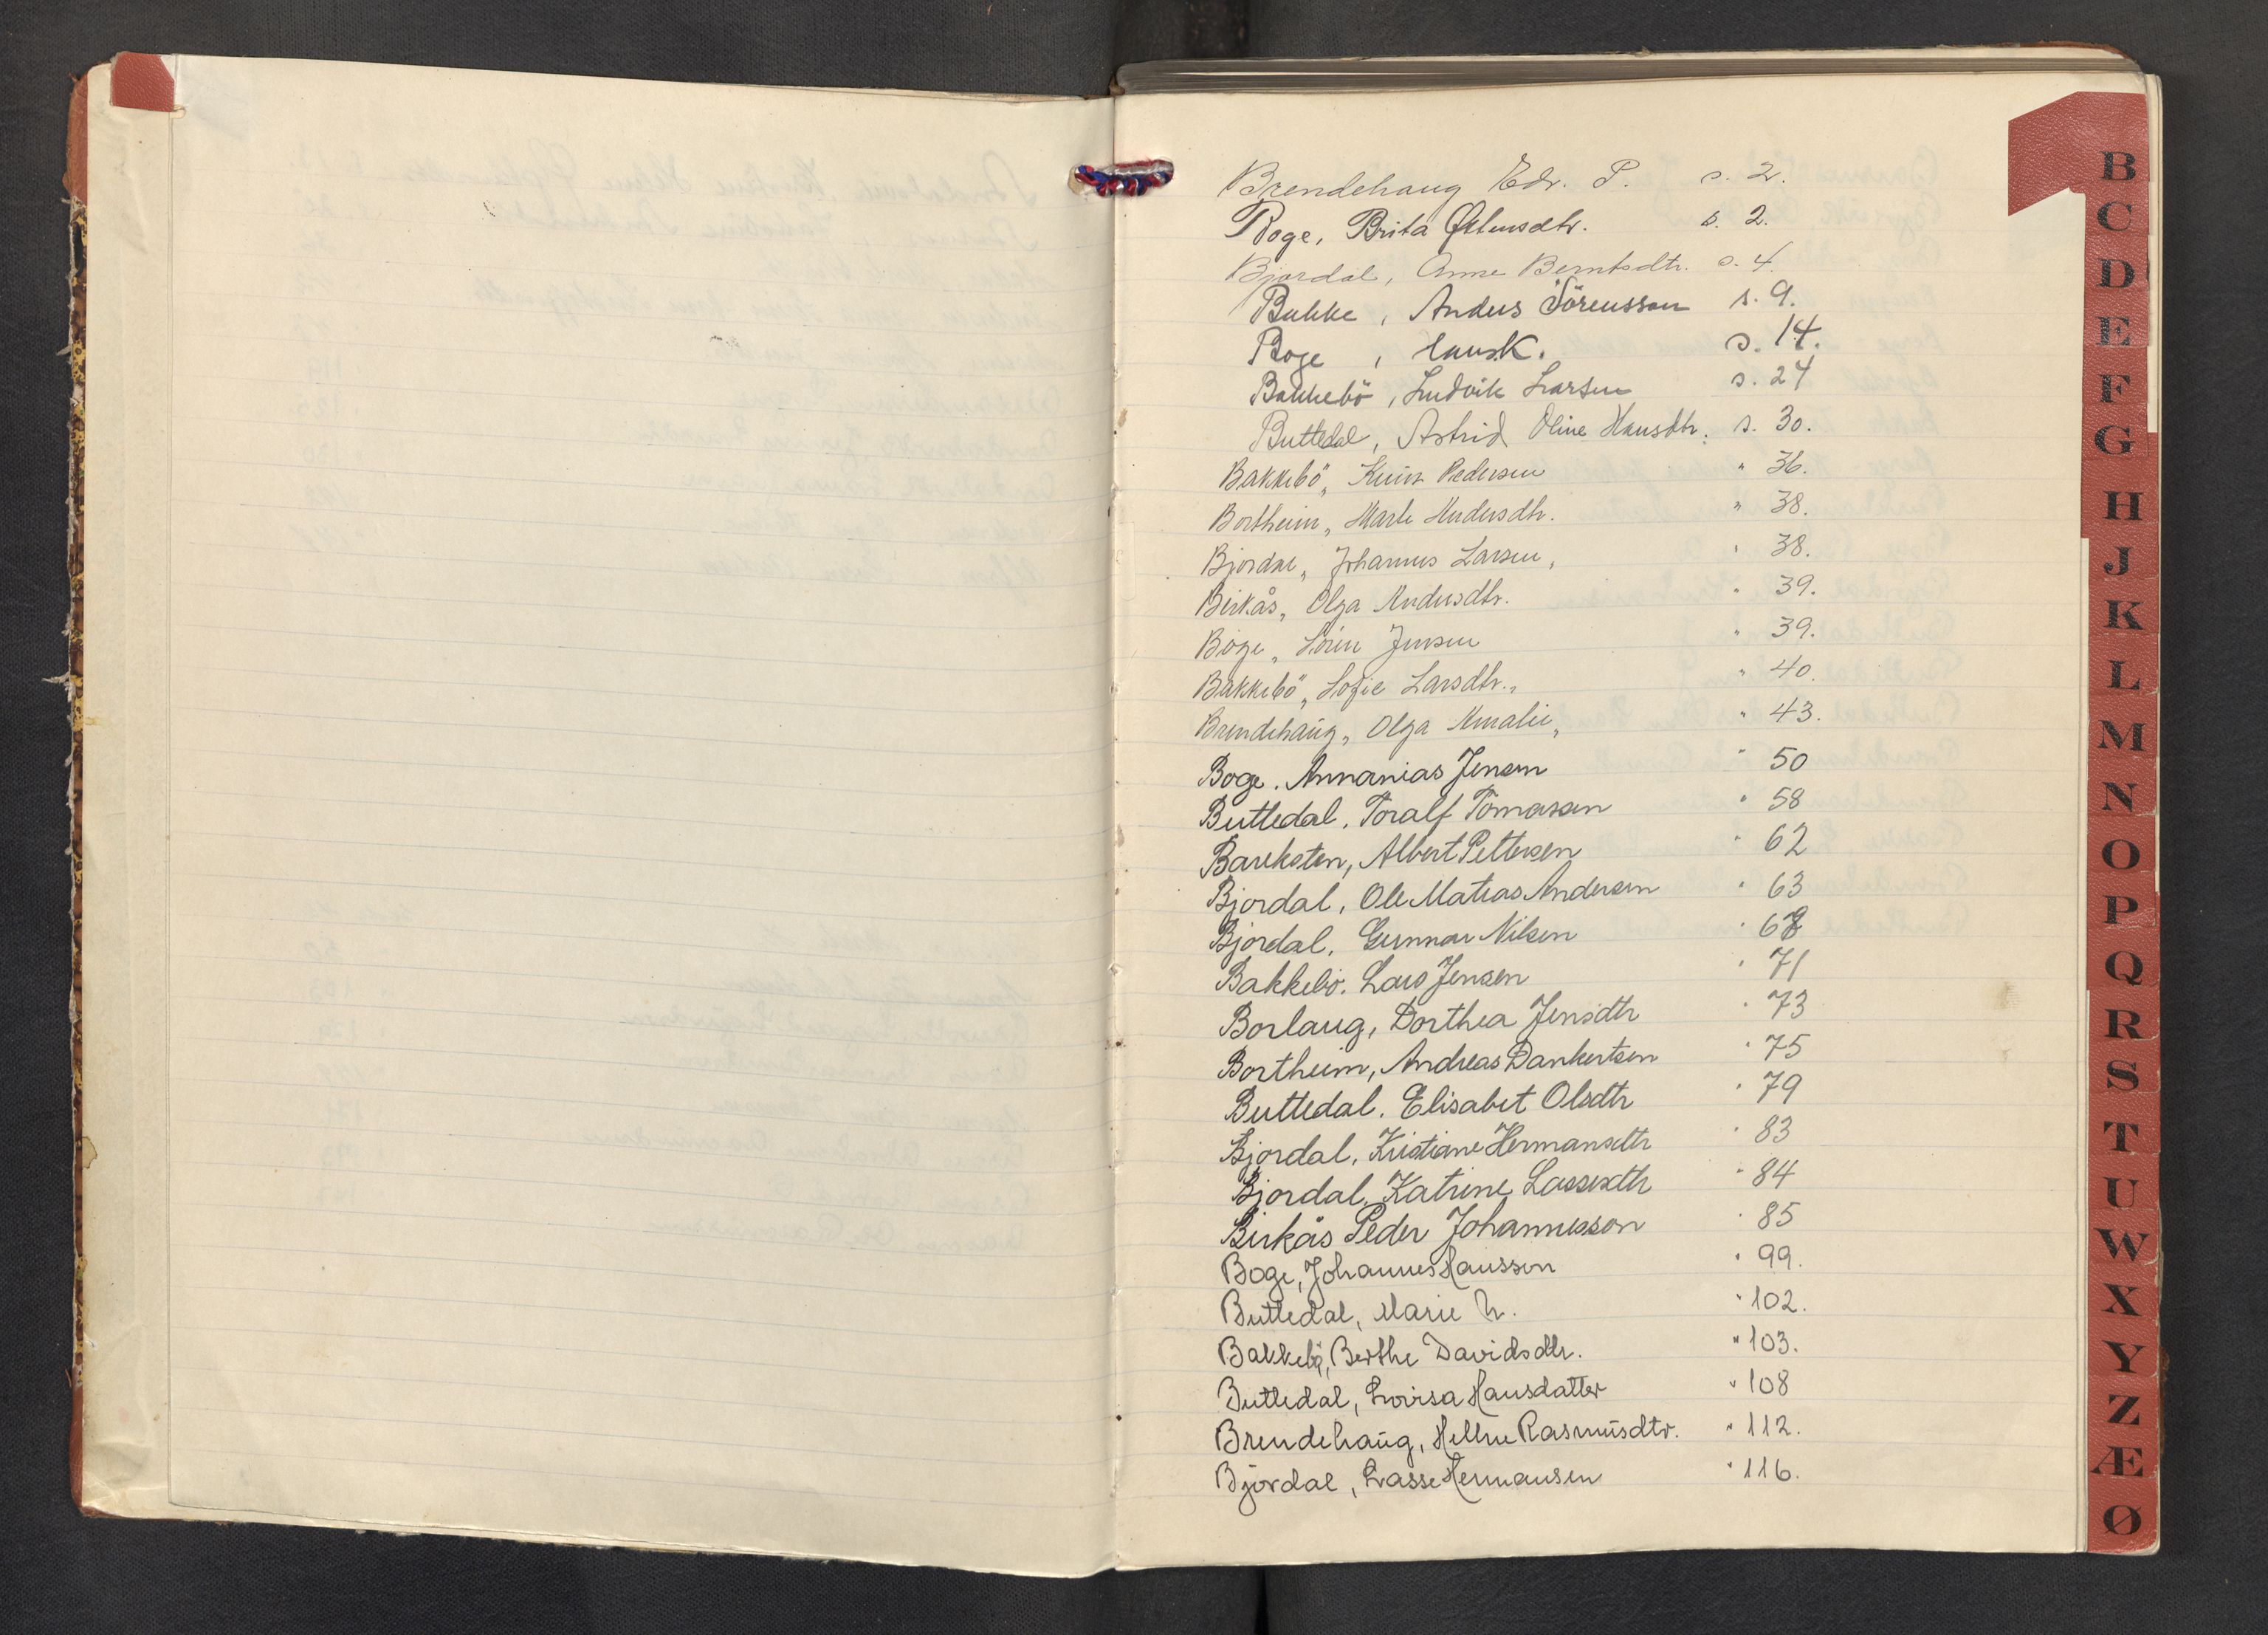 Brendehaug Edv. P. s. 2.
Boge, Brita Østensdtr. s. 2.
Bjordal, Anne Berntsdtr. s. 4.
Bakke, Anders Sörensson s. 9.
Boge, Hans K. s. 14.
Bakkebö, Ludvik Larsen s. 24
Buttedal, Astrid Oline Hansdtr. s. 30.
Bakkebö, Pedersen " 36.
Bortheim, Marte Andersdtr. " 38.
Bjordal, Johannes Larsen, " 38.
Birkås, Olga Andersdtr. " 39.
Böge, Sören Jensen " 39.
Bakkebö, Sofie Larsdtr., " 40.
Brendehaug, Olga Amalie, " 43.
Boge. Annanias Jensen " 50
Buttedal, Toralf Tomassen " 58
Bareksten, Albert Pettersen " 62
Bjordal, Ole Matias Andersen " 63
Bjordal, Gunnar Nilsen "
Bakkebö. Lars Jensen " 71
Borlaug, Dorthea Jensdtr " 73
Bortheim, Andreas Dankertsen " 75
Buttedal. Elisabet Olsdtr " 79
Bjordal, Kristiane Hermansdtr " 83
Bjordal, Katrine Lassesdtr " 84
Birkås Peder Johannesson " 85
Boge, Johannes Hanssen " 99.
Buttedal, Marie " 102.
Bakkebö, Berthe Davidsdtr. " 103.
Buttedal, Lovisa Hansdatter " 108
Brendehaug, Helene Rasmusdtr. " 112.
Bjordal, Lasse Hermansen " 116.
B
C
D
E
F
G
H
J
K
L
M
N
O
P
Q
R
S
T
U
W
X
Y
Z
Æ
Ø